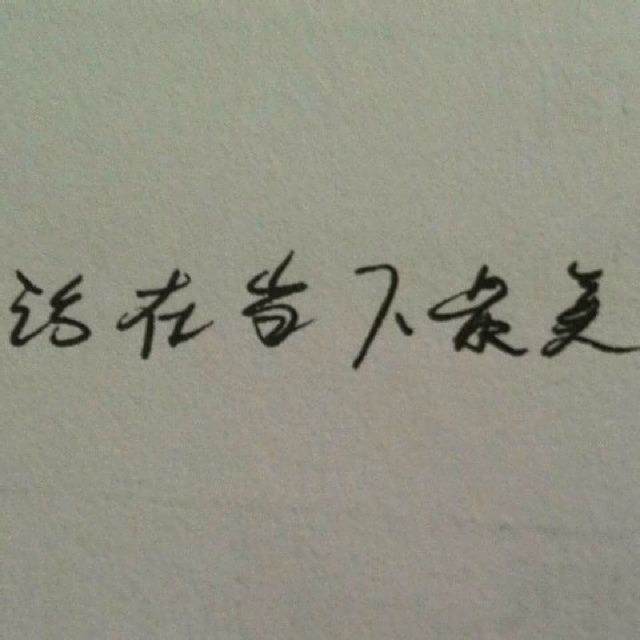 活在当下最美